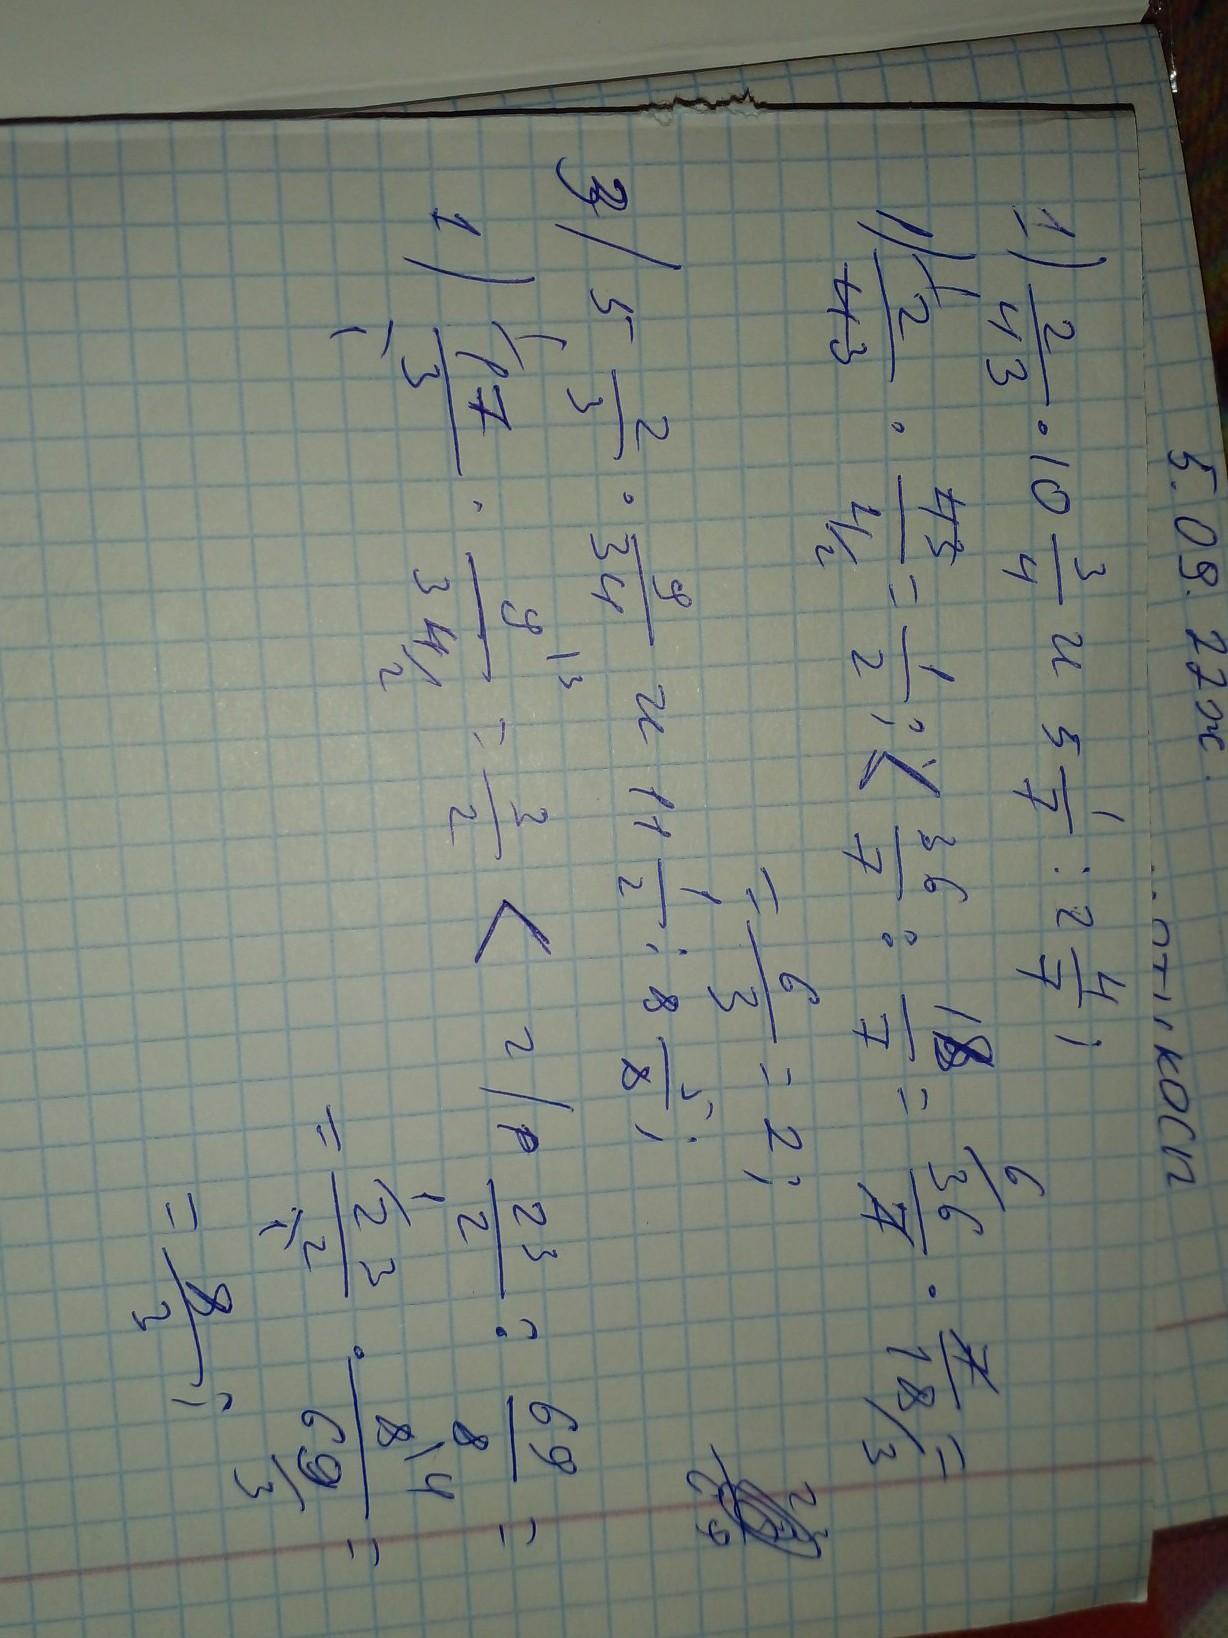 5.09. 27ж.
1) 2/43 · 10 3/4 и 5 1/7 : 2 4/7;
1) 2/43 · 43/4 2 = 1/2; < 36/7 : 18/7 = 6 36/7 · 7/18 3 =
= 6/3 = 2;
3) 5 2/3 · 9/34 и 11 1/2 : 8 5/8;
1) 17/3 · 9 3/34 2 = 3/2 < 2) 23/2 : 69/8 =
= 23/2 · 8 4/69 3 =
= 8/3;